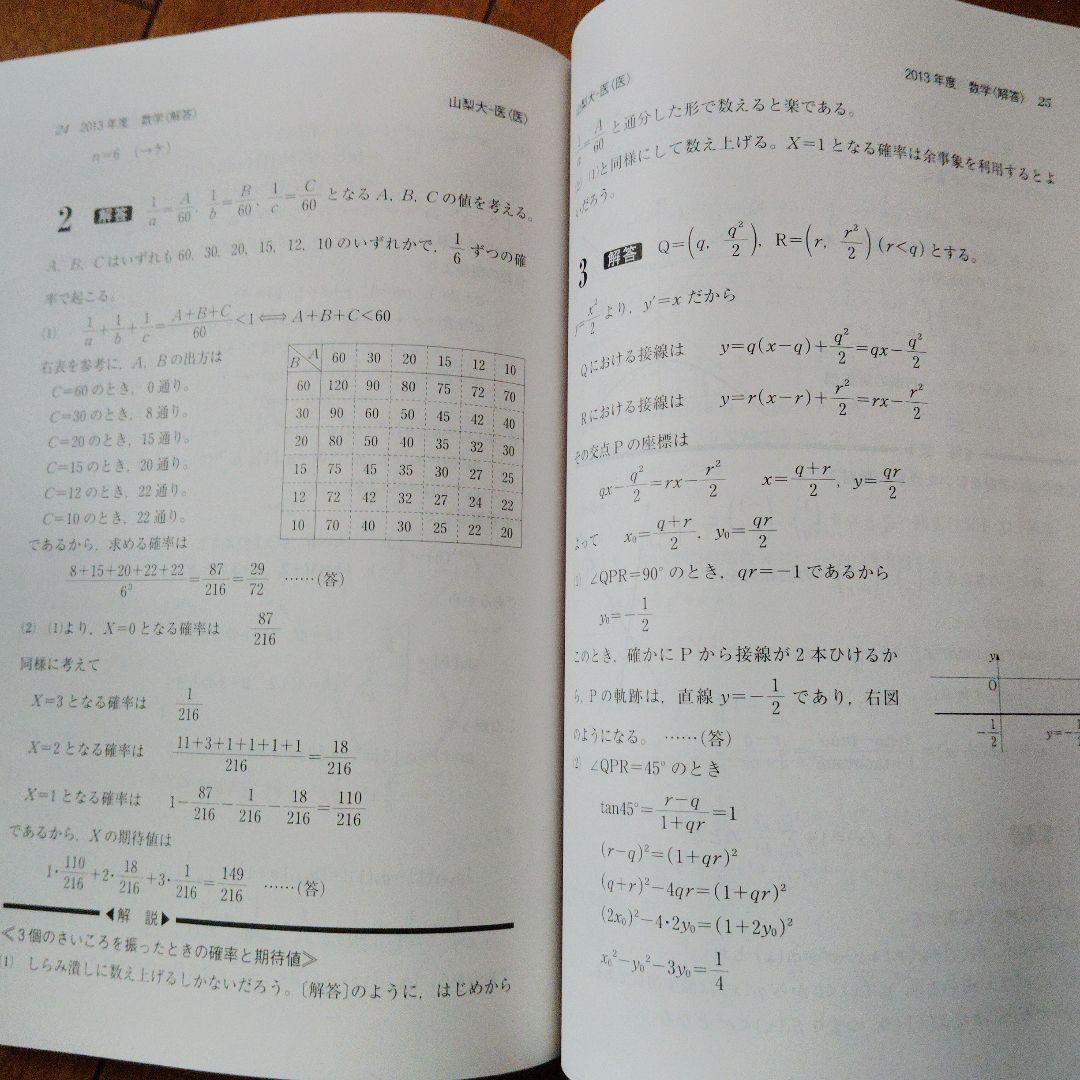 24 2013年度 数学〈解答〉 山梨大-医〈医〉
n=6 (→ケ)
2 解答 1/a=A/60, 1/b=B/60, 1/c=C/60 となる A, B, C の値を考える。
A, B, C はいずれも 60, 30, 20, 15, 12, 10 のいずれかで, 1/6 ずつの確
率で起こる。
(1) 1/a+1/b+1/c=(A+B+C)/60<1⟺A+B+C<60
右表を参考に, A, B の出方は
C=60 のとき, 0 通り。
C=30 のとき, 8 通り。
C=20 のとき, 15 通り。
C=15 のとき, 20 通り。
C=12 のとき, 22 通り。
C=10 のとき, 22 通り。
B A 60 30 20 15 12 10
60 120 90 80 75 72 70
30 90 60 50 45 42 40
20 80 50 40 35 32 30
15 75 45 35 30 27 25
12 72 42 32 27 24 22
10 70 40 30 25 22 20
であるから, 求める確率は
(8+15+20+22+22)/6³=87/216=29/72 ……(答)
(2) (1)より, X=0 となる確率は 87/216
同様に考えて
X=3 となる確率は 1/216
X=2 となる確率は (11+3+1+1+1+1)/216=18/216
X=1 となる確率は 1-87/216-1/216-18/216=110/216
であるから, X の期待値は
1・110/216+2・18/216+3・1/216=149/216 ……(答)
◀解 説▶
≪3個のさいころを振ったときの確率と期待値≫
(1) しらみ潰しに数え上げるしかないだろう。〔解答〕のように, はじめから
山梨大-医〈医〉 2013年度 数学〈解答〉 25
1/a=A/60 と通分した形で数えると楽である。
(2) (1)と同様にして数え上げる。X=1 となる確率は余事象を利用するとよ
いだろう。
3 解答 Q=(q, q²/2), R=(r, r²/2) (r<q) とする。
y=x²/2 より, y′=x だから
Q における接線は y=q(x-q)+q²/2=qx-q²/2
R における接線は y=r(x-r)+r²/2=rx-r²/2
その交点 P の座標は
qx-q²/2=rx-r²/2 x=(q+r)/2, y=qr/2
よって x₀=(q+r)/2, y₀=qr/2
(1) ∠QPR=90° のとき, qr=-1 であるから
y₀=-1/2
このとき, 確かに P から接線が 2 本ひけるか
ら, P の軌跡は, 直線 y=-1/2 であり, 右図
のようになる。 ……(答)
y
O
-1/2 y=-1
(2) ∠QPR=45° のとき
tan45°=(r-q)/(1+qr)=1
(r-q)²=(1+qr)²
(q+r)²-4qr=(1+qr)²
(2x₀)²-4・2y₀=(1+2y₀)²
x₀²-y₀²-3y₀=1/4